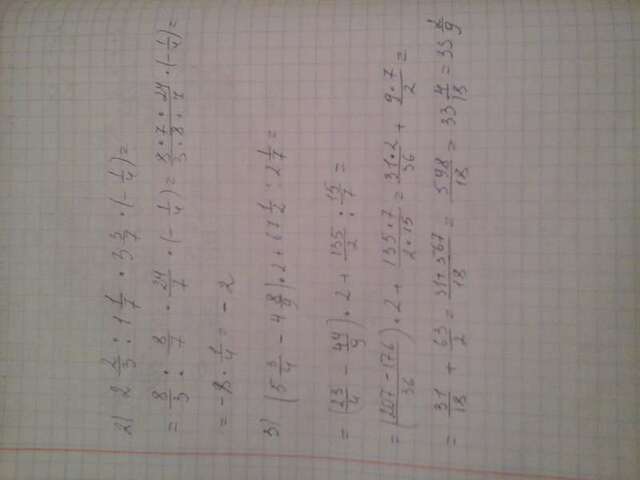 2) 2 2/3 : 1 1/7 · 3 3/7 · (- 1/4) =
= 8/3 : 8/7 · 24/7 · (- 1/4) = 8 · 7 · 24/3 · 8 · 7 · (- 1/4) =
= - 8 · 1/4 = - 2
3) (5 3/4 - 4 8/9) · 2 + 67 1/2 : 2 1/7 =
= (23/4 - 44/9) · 2 + 135/2 : 15/7 =
= (207 - 176/36) · 2 + 135 · 7/2 · 15 = 31 · 2/36 + 9 · 7/2 =
= 31/18 + 63/2 = 31 + 567/18 = 598/18 = 33 4/18 = 33 2/9